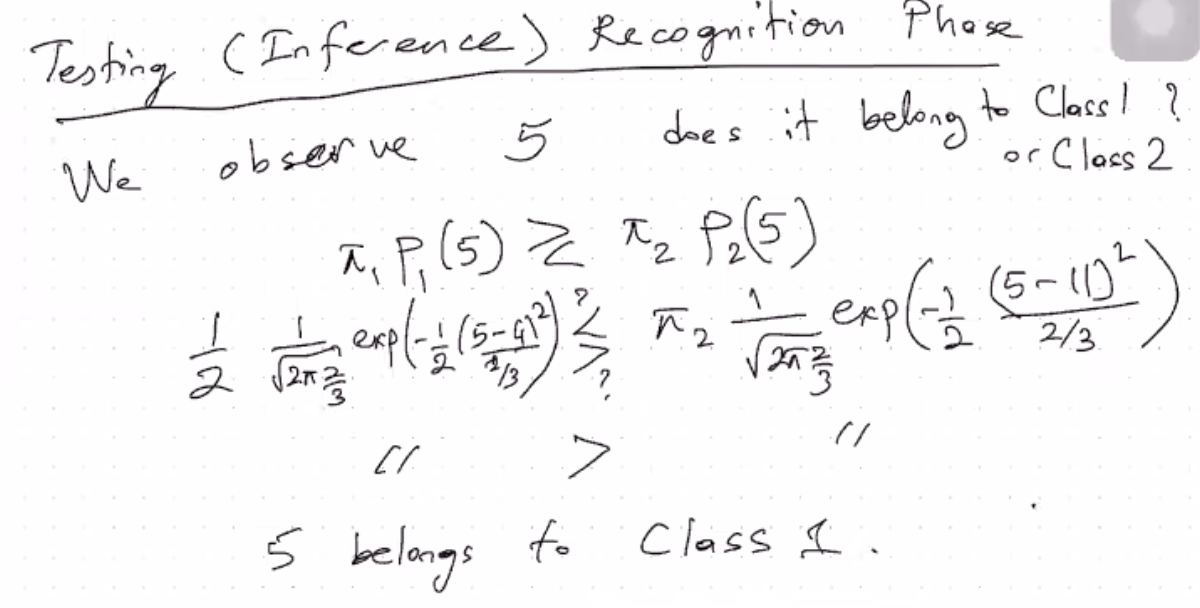 Testing (Inference) Recognition Phase
We observe 5 does it belong to Class 1 ?
or Class 2
π₁ P₁(5) ≷ π₂ P₂(5)
1/2 1/√(2π 2/3) exp(-1/2 (5-4)²/(2/3)) ? ≶ ? π₂ 1/√(2π 2/3) exp(-1/2 (5-11)²/(2/3))
" > "
5 belongs to Class 1.